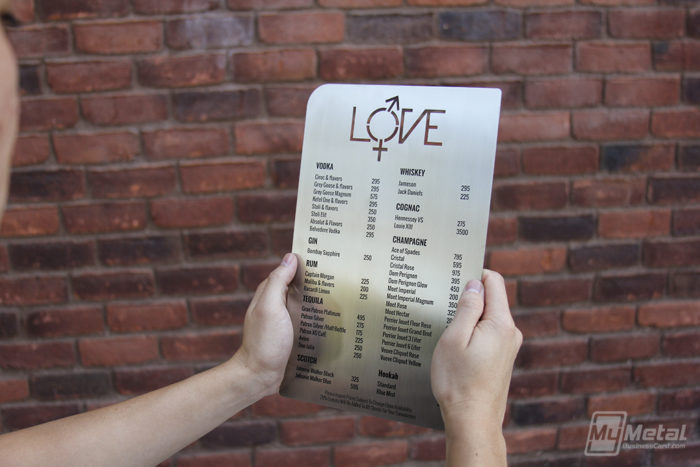 LOVE
VODKA
Ciroc & flavors 295
Grey Goose & flavors 295
Grey Goose Magnum 575
Ketel One & flavors 295
Stoli & flavors 250
Stoli Elit 350
Absolut & Flavors 250
Belvedere Vodka 295
GIN
Bombay Sapphire 250
RUM
Captain Morgan 225
Malibu & flavors 200
Bacardi Limon 225
TEQUILA
Gran Patron Platinum 495
Patron Silver 275
Patron Silver /Half Bottle 175
Patron XO Café 275
Avion 250
Don Julio 250
SCOTCH
Johnnie Walker Black 325
Johnnie Walker Blue 595
WHISKEY
Jameson 295
Jack Daniels 225
COGNAC
Hennessy VS 275
Louie XIII 3500
CHAMPAGNE
Ace of Spades 795
Cristal 595
Cristal Rose 975
Dom Perignon 395
Dom Perignon Glow 450
Moet Imperial
Moet Imperial Magnum
Moet Rose
Moet Nectar
Perrier Jouet Fleur Rose
Perrier Jouet Grand Brut
Perrier Jouet 3 Liter
Perrier Jouet 6 Liter
Veuve Cliquot Rose
Veuve Cliquot Yellow
Hookah
Standard
Blue Mist
MyMetal
BusinessCard.com